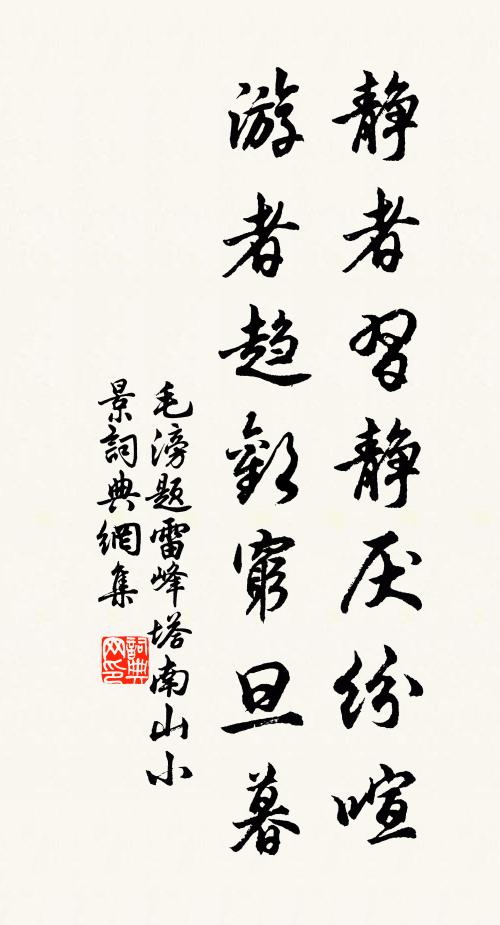 静者習静厌纷喧
游者趋歡窮旦暮
毛滂题雷峰塔南山小
景詞典網集
詞典
网印